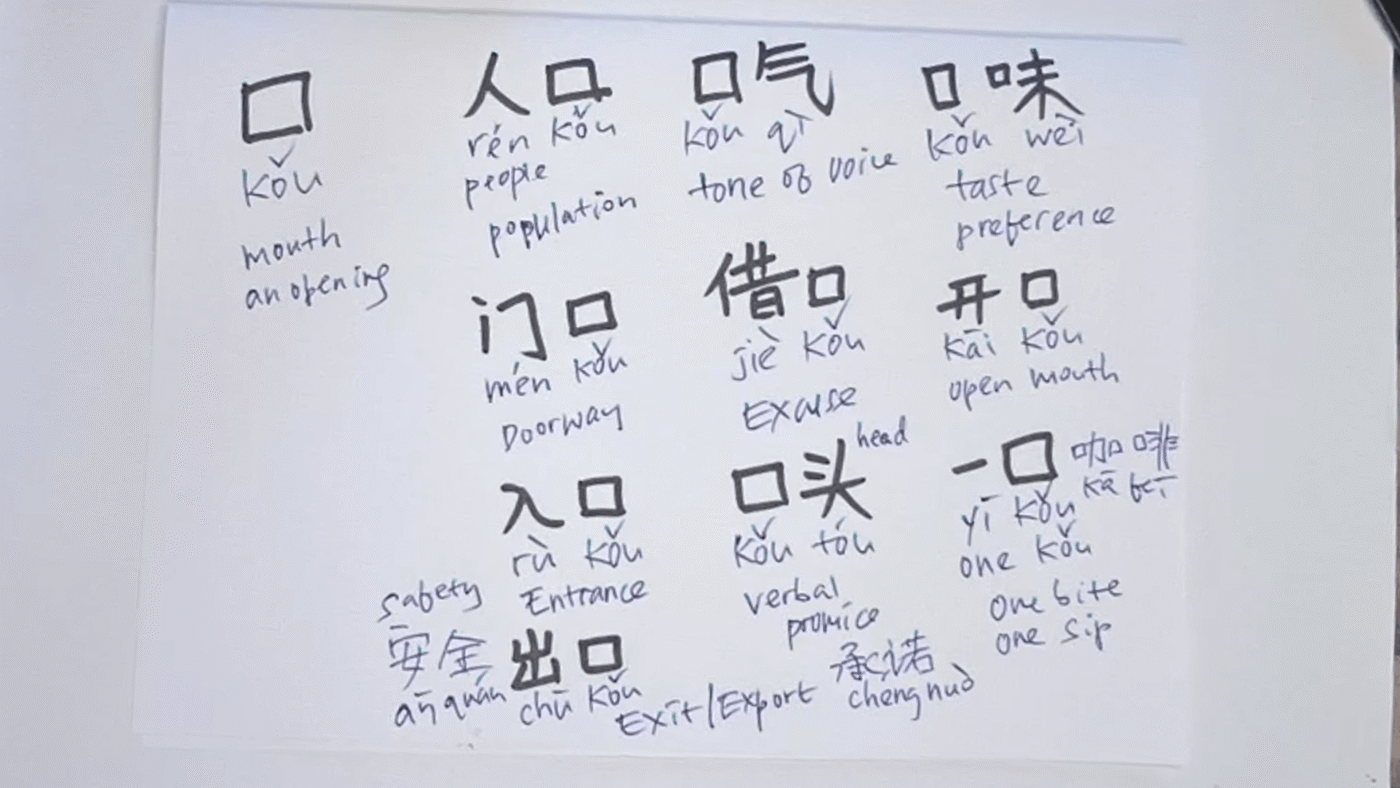 口
kǒu
mouth
an opening
人口
rén kǒu
people
population
口气
kǒu qì
tone of voice
口味
kǒu wèi
taste
preference
门口
mén kǒu
Doorway
借口
jiè kǒu
Excuse
开口
kāi kǒu
open mouth
入口
rù kǒu
Entrance
口头 head
kǒu tóu
verbal
promice
承诺
cheng nuò
一口 咖啡
yī kǒu kā fēi
one kǒu
one bite
one sip
safety
安全出口
ān quán chū kǒu
Exit/Export